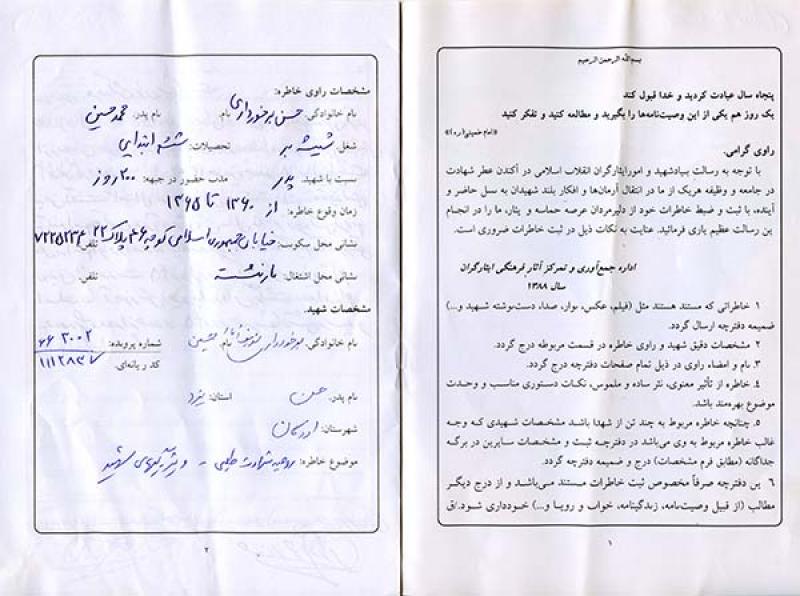 بسم‌الله الرحمن الرحیم
پنجاه سال عبادت کردید و خدا قبول کند
یک روز هم یکی از این وصیت‌نامه‌ها را بگیرید و مطالعه کنید و تفکر کنید
«امام خمینی(ره)»
راوی گرامی.
با توجه به رسالت بنیادشهید و امورایثارگران انقلاب اسلامی در آکندن عطر شهادت
در جامعه و وظیفه هریک از ما در انتقال آرمان‌ها و افکار بلند شهیدان به نسل حاضر و
آینده، با ثبت و ضبط خاطرات خود از دلیرمردان عرصه حماسه و یثار، ما را در انجام
ین رسالت عظیم یازی فرمائید. عنایت به نکات ذیل در ثبت خاطرات ضروری است.
اداره جمع‌آوری و تمرکز آثار فرهنگی ایثارگران
سال ۱۳۸۸
۱ خاطراتی که مستند هستند مثل (فیلم، عکس، نوار، صدا، دست‌نوشته شهید و...)
ضمیمه دفترچه ارسال گردد.
۲ مشخصات دقیق شهید و راوی خاطره در قسمت مربوطه درج گردد.
۳ نام و امضاء راوی در ذیل تمام صفحات دفترچه درج گردد.
۴ خاطره از تأثیر معنوی، نثر ساده و ملموس، نکات دستوری مناسب و وحدت
موضوع بهره‌مند باشد.
۵ چنانچه خاطره مربوط به چند تن از شهدا باشد مشخصات شهیدی که وجه
غالب خاطره مربوط به وی می‌باشد در دفترچه ثبت و مشخصات سایرین در برگه
جداگانه (مطابق فرم مشخصات) درج و ضمیمه دفترچه گردد.
۶ ین دفترچه صرفاً مخصوص ثبت خاطرات مستند می‌باشد و از درج دیگر
مطالب (از قبیل وصیت‌نامه، زندگینامه، خواب و رویا و...) خودداری شود./ق
۱
مشخصات راوی خاطره:
نام خانوادگی: حسن برخورداری نام: نام پدر: محمد حسین
شغل: شیشه بر تحصیلات: ششم ابتدایی
نسبت با شهید: پدر مدت حضور در جبهه: ۲۰۰ روز
زمان وقوع خاطره: از ۱۳۶۰ تا ۱۳۶۵
نشانی محل سکونت: خیابان جمهوری اسلامی کوچه ۴۶ پلاک ۲۲ تلفن: ۷۲۲۵۲۳۴
نشانی محل اشتغال: بازنشسته تلفن:
مشخصات شهید:
نام خانوادگی: برخورداری نام: حسین شماره پرونده: ۶۶۳۰۰۲
کد رایانه‌ای: ۱۱۱۲۸۳۷
نام پدر: حسن استان: یزد
شهرستان: اردکان
موضوع خاطره: روحیه شهادت طلبی - ویژگیهای شهید
۲